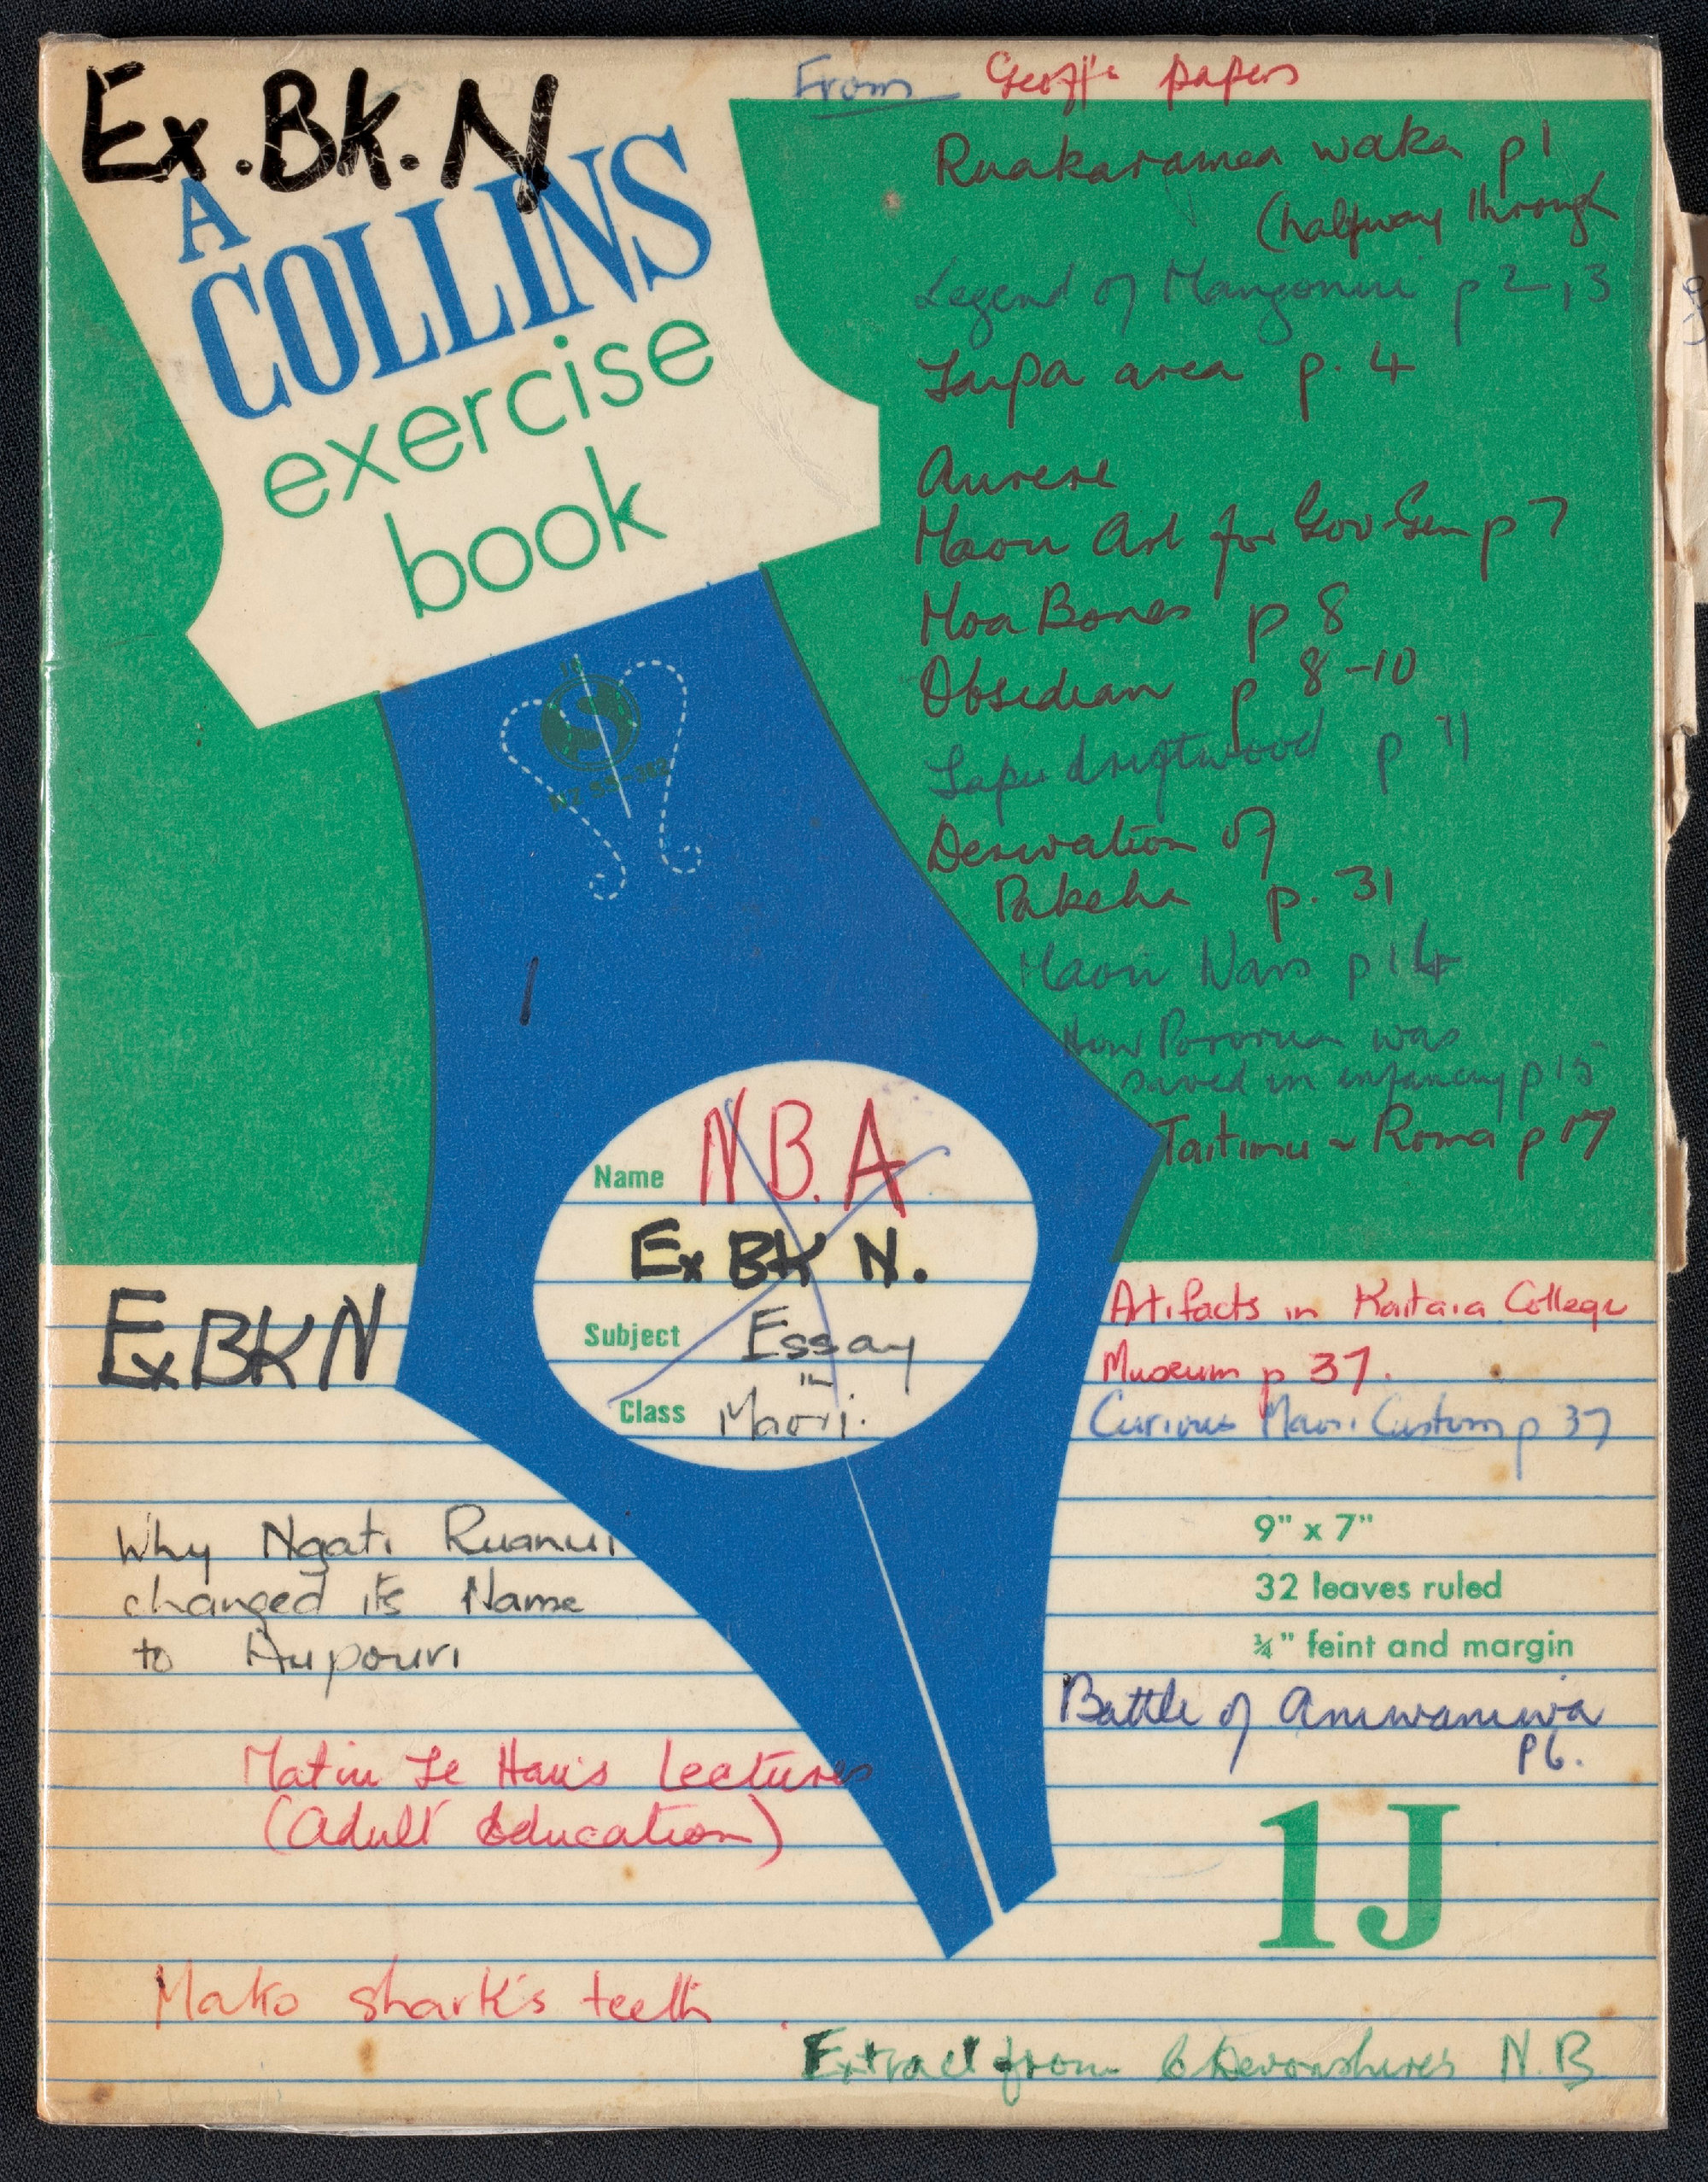 Ex.Bk.N
A
COLLINS
exercise
book
From Geoff's papers
Ruakaramea waka p1
(halfway through
Legend of Mangonui p 2, 3
Taipa area p. 4
Aurere
Maori Art for Gov-Gen p 7
Moa Bones p 8
Obsidian p 8-10
Tapu driftwood p 11
Derivation of
Pakeha p. 31
Maori Wars p 14
How Pororua was
saved in infancy p 15
Taitimu ~ Roma p 17
Name N.B.A
Ex BK N.
Subject Essay
in
Class Maori.
Ex BK N
Artifacts in Kaitaia College
Museum p 37.
Curious Maori Custom p 37
9" x 7"
32 leaves ruled
¼" feint and margin
Why Ngati Ruanui
changed its Name
to Aupouri
Battle of Aniwaniwa
p6.
Matiu Te Hau's Lectures
(Adult Education)
1J
Mako shark's teeth
Extract from Devonshire's N.B